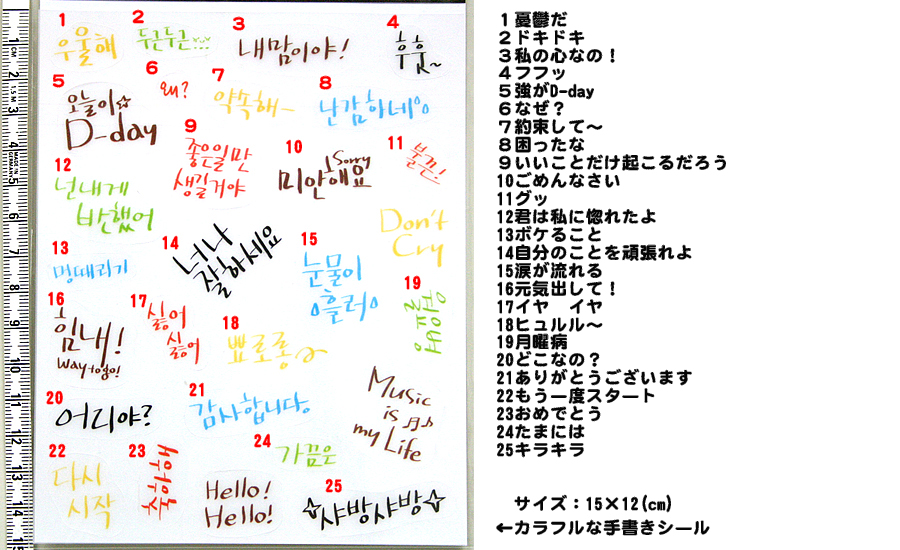 1 우울해
2 두근두근...
3 내맘이야!
4 후훗~
5 오늘이☆
D-day
6 왜?
7 약속해~
8 난감하네
9 좋은일만
생길거야
10 Sorry
미안해요
11 불끈!
12 넌내게
반했어
Don't
Cry
13 멍때리기
14 너나
잘하세요
15 눈물이
흘러
16 힘내!
way to go!
17 싫어
싫어
18 뾰로롱~
19 월요병
20 어리야?
21 감사합니다.
Music
is
my Life
22 다시
시작
23 축
24 가끔은
Hello!
Hello!
25 ☆샤방샤방☆
1憂鬱だ
2ドキドキ
3私の心なの!
4フフッ
5強がD-day
6なぜ?
7約束して~
8困ったな
9いいことだけ起こるだろう
10ごめんなさい
11グッ
12君は私に惚れたよ
13ボケること
14自分のことを頑張れよ
15涙が流れる
16元気出して!
17イヤ イヤ
18ヒュルル~
19月曜病
20どこなの?
21ありがとうございます
22もう一度スタート
23おめでとう
24たまには
25キラキラ
サイズ:15×12(cm)
←カラフルな手書きシール